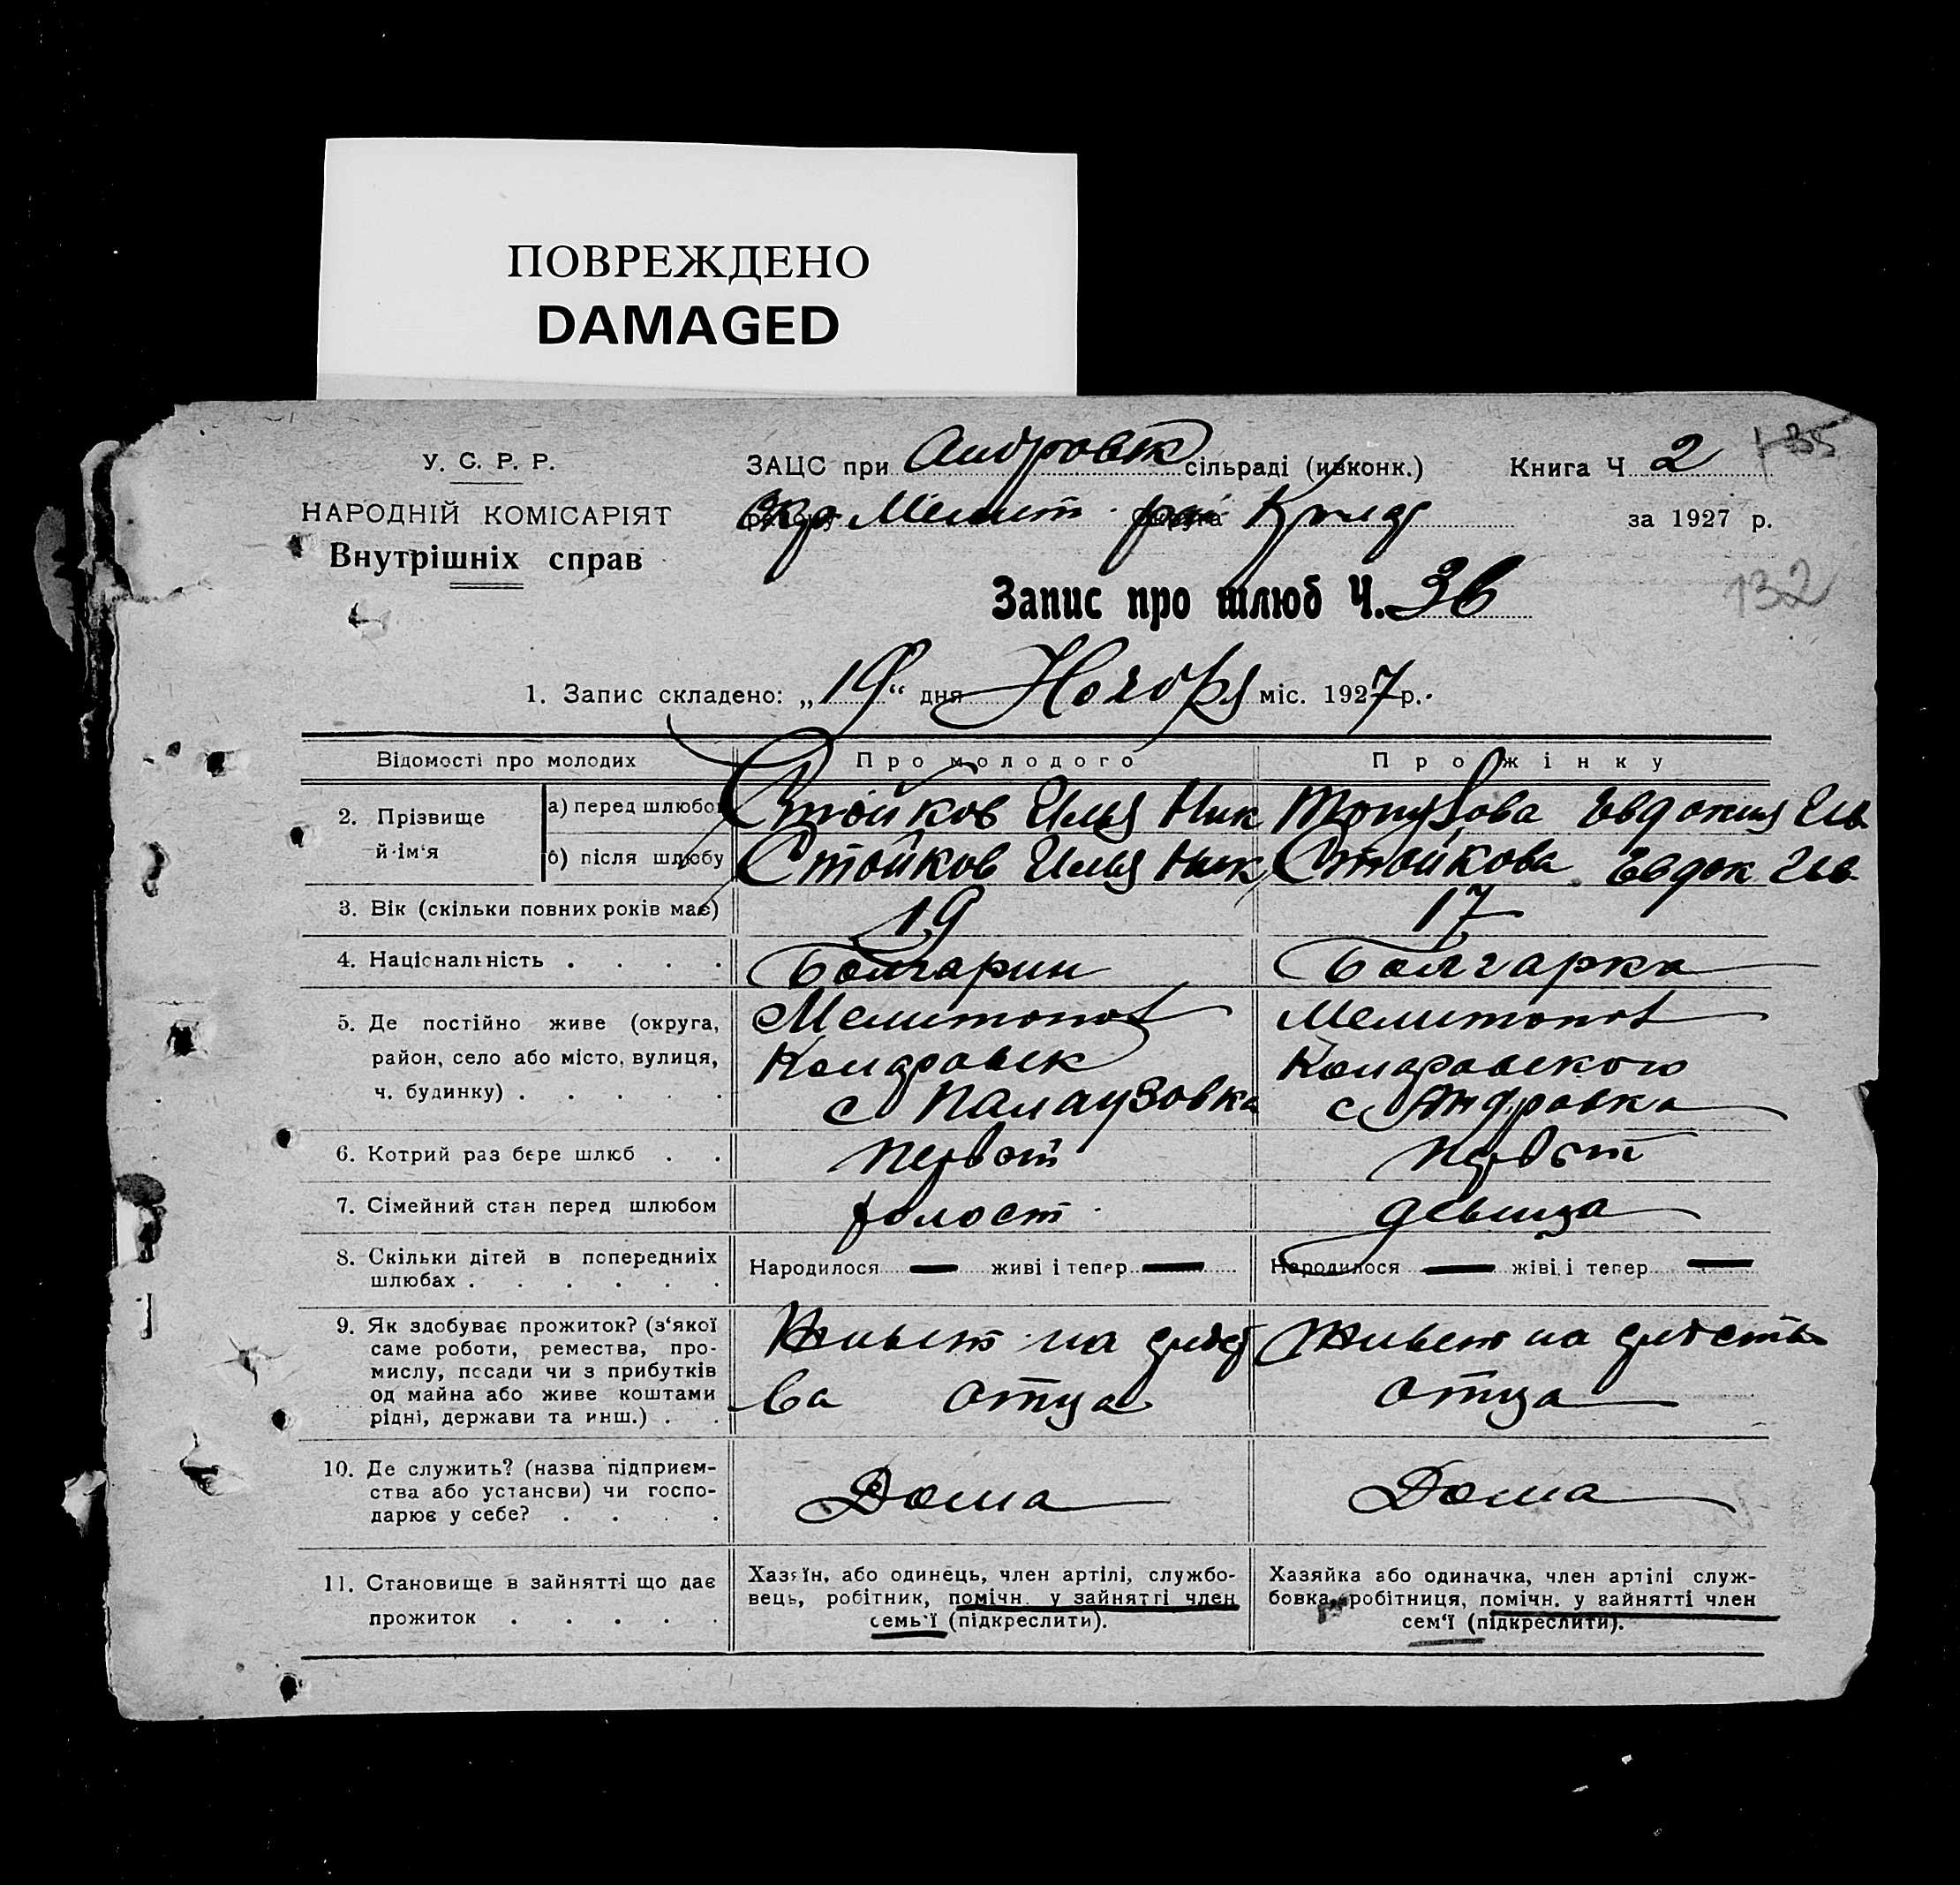 ПОВРЕЖДЕНО
DAMAGED
У. С. Р. Р.
НАРОДНІЙ КОМІСАРІЯТ
Внутрішніх справ
ЗАЦС при Андровск сільраді (виконк.)
Окр Мелит рай
Книга Ч 2
135
за 1927 р.
132
Запис про шлюб Ч. 36
1. Запис складено: „19“ дня Ноября міс. 1927 р.
Відомості про молодих
Про молодого
Про жінку
2. Прізвище й ім'я
а) перед шлюбом
Стойков Илья Ник
Топузова Евдокия Ив
б) після шлюбу
Стойков Илья Ник
Стойкова Евдок Ив
3. Вік (скільки повних років має)
19
17
4. Національність . . . .
Болгарин
Болгарка
5. Де постійно живе (округа,
район, село або місто, вулиця,
ч. будинку) . . . . .
Мелитопол
с Палаузовка
Мелитопол
с Андровка
6. Котрий раз бере шлюб . .
первой
первой
7. Сімейний стан перед шлюбом
холост
девица
8. Скільки дітей в попередніх
шлюбах . . . . . .
Народилося — живі і тепер —
Народилося — живі і тепер —
9. Як здобуває прожиток? (з'якої
саме роботи, ремества, про-
мислу, посади чи з прибутків
од майна або живе коштами
рідні, держави та инш.) . .
Живет на средст
ва отца
Живет на средства
отца
10. Де служить? (назва підприєм-
ства або установи) чи госпо-
дарює у себе? . . . .
Дома
Дома
11. Становище в зайнятті що дає
прожиток . . . . .
Хазяїн, або одинець, член артілі, службо-
вець, робітник, помічн. у зайнятті член
семь'ї (підкреслити).
Хазяйка або одиначка, член артілі служ-
бовка, робітниця, помічн. у зайнятті член
сем'ї (підкреслити).